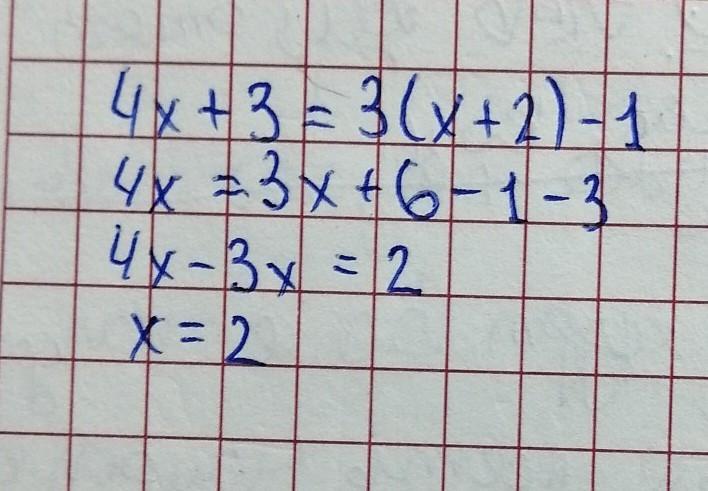 4x + 3 = 3(x + 2) - 1
4x = 3x + 6 - 1 - 3
4x - 3x = 2
x = 2